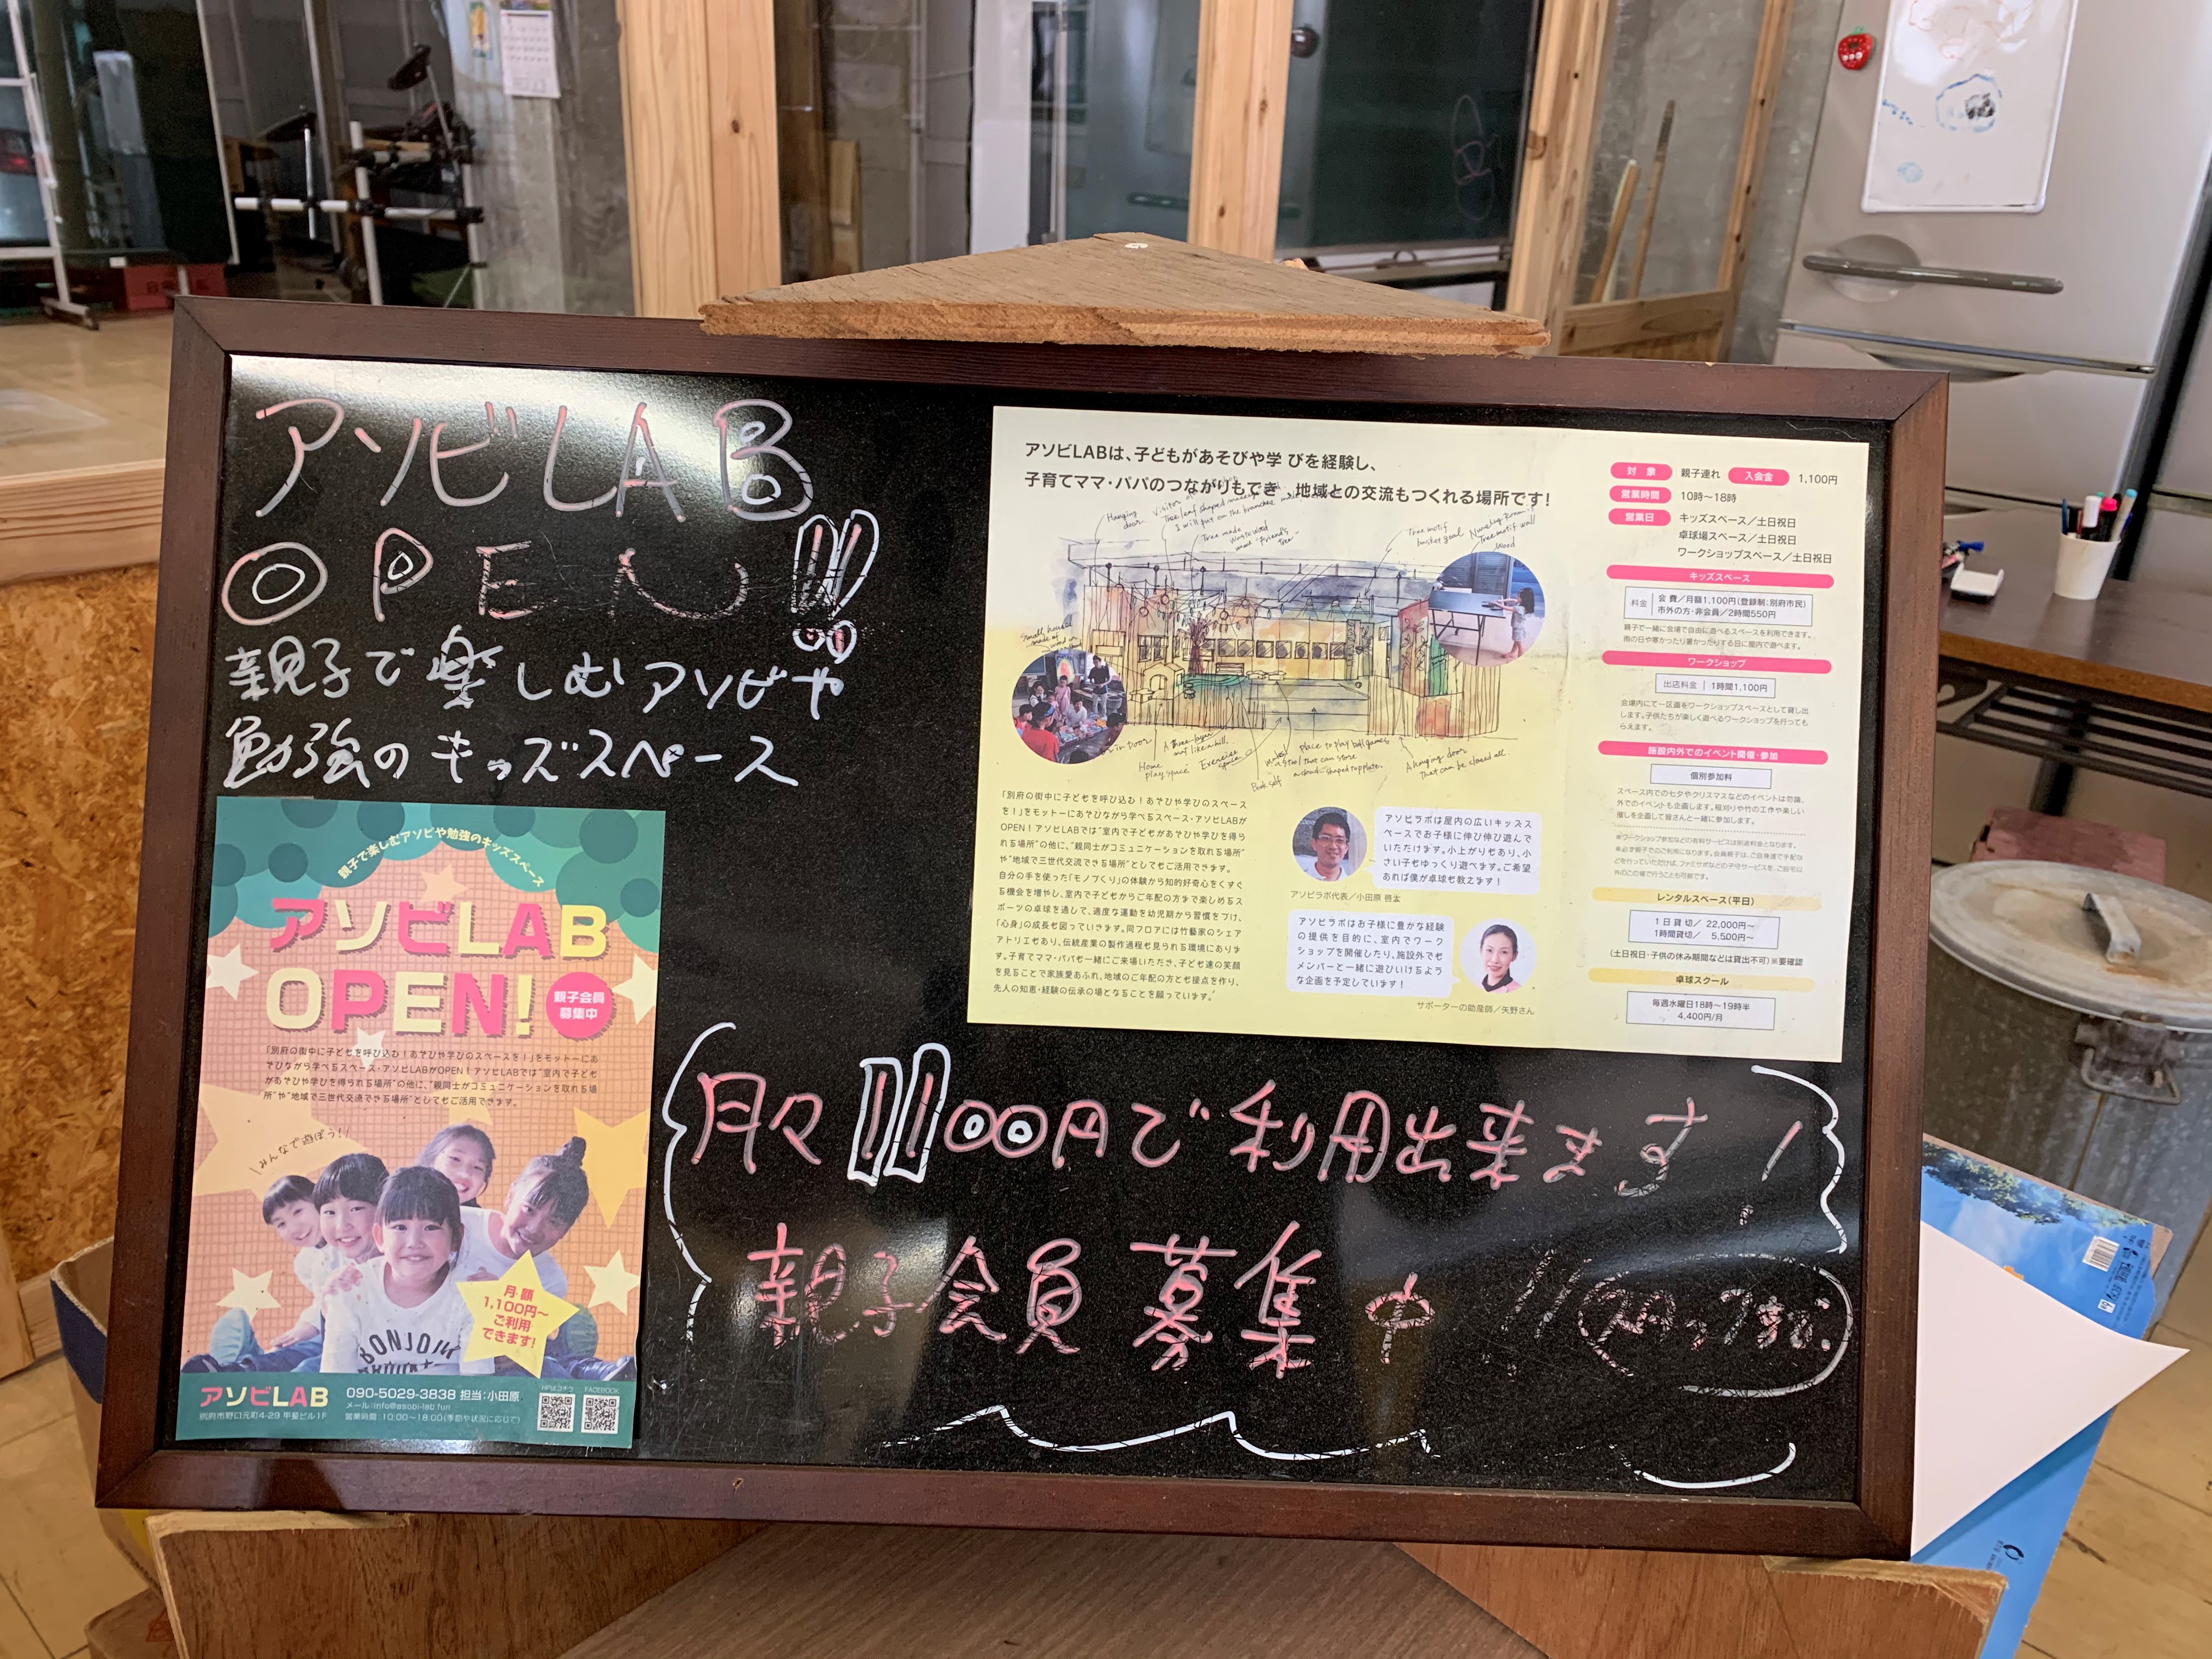 アソビLAB
OPEN!!
親子で楽しむアソビや
勉強のキッズスペース
月々1100円で利用出来ます!
親子会員募集中!!
親子で楽しむアソビや勉強のキッズスペース
アソビLAB
OPEN!
親子会員
募集中
「別府の街中に子どもを呼び込む！あそびや学びのスペースを！」をモットーにあ
そびながら学べるスペース・アソビLABがOPEN！アソビLABでは“室内で子ども
があそびや学びを得られる場所”の他に、“親同士がコミュニケーションを取れる場
所”や“地域で三世代交流できる場所”としてもご活用できます。
みんなで遊ぼう！
BONJOUR
月額
1,100円〜
ご利用
できます!
アソビLAB
090-5029-3838 担当:小田原
メール:info@asobi-lab.fun
別府市野口元町4-29 甲斐ビル1F
営業時間:10:00〜18:00(季節や状況に応じて)
HPはコチラ
FACEBOOK
アソビLABは、子どもがあそびや学 びを経験し、
子育てママ・パパのつながりもでき 、地域との交流もつくれる場所です！
Hanging
door
I will put on the branches
Tree made
waste wood
Tree motif
basket goal
Nursing Room
Tree motif wall
wood
Small house
made of
Home
play space
Exercise
space
Book self
place to play ball games
A hanging door
that can be closed all
「別府の街中に子どもを呼び込む！あそびや学びのスペース
を！」をモットーにあそびながら学べるスペース・アソビLABが
OPEN！アソビLABでは“室内で子どもがあそびや学びを得ら
れる場所”の他に、“親同士がコミュニケーションを取れる場所”
や“地域で三世代交流できる場所”としてもご活用できます。
自分の手を使った「モノづくり」の体験から知的好奇心をくすぐ
る機会を増やし、室内で子どもからご年配の方まで楽しめるス
ポーツの卓球を通して、適度な運動を幼児期から習慣をづけ、
「心身」の成長も図っていきます。同フロアには竹藝家のシェア
アトリエもあり、伝統産業の製作過程も見られる環境にありま
す。子育てママ・パパも一緒にご来場いただき、子ども達の笑顔
を見ることで家族愛あふれ、地域のご年配の方とも接点を作り、
先人の知恵・経験の伝承の場となることを願っています。”
アソビラボは屋内の広いキッズス
ペースでお子様に伸び伸び遊んで
いただけます。小上がりもあり、小
さい子もゆっくり遊べます。ご希望
あれば僕が卓球も教えます！
アソビラボ代表／小田原 啓太
アソビラボはお子様に豊かな経験
の提供を目的に、室内でワーク
ショップを開催したり、施設外でも
メンバーと一緒に遊びいけるよう
な企画を予定しています！
サポーターの助産師／矢野さん
対 象 親子連れ 入会金 1,100円
営業時間 10時〜18時
営業日 キッズスペース／土日祝日
卓球場スペース／土日祝日
ワークショップスペース／土日祝日
キッズスペース
料金 会 費／月額1,100円(登録制:別府市民)
市外の方・非会員／2時間550円
親子で一緒に会場で自由に遊べるスペースを利用できます。
雨の日や寒かったり暑かったりする日に屋内で遊べます。
ワークショップ
出店料金 1時間1,100円
会場内にて一区画をワークショップスペースとして貸し出
します。子供たちが楽しく遊べるワークショップを行っても
らえます。
施設内外でのイベント開催・参加
個別参加料
スペース内での七夕やクリスマスなどのイベントは勿論、
外でのイベントも企画します。稲刈りや竹の工作や楽しい
催しを企画して皆さんと一緒に参加します。
※ワークショップ参加などの有料サービスは別途料金となります。
レンタルスペース(平日)
1日貸切／ 22,000円〜
1時間貸切／ 5,500円〜
(土日祝日・子供の休み期間などは貸出不可)※要確認
卓球スクール
毎週水曜日18時〜19時半
4,400円/月